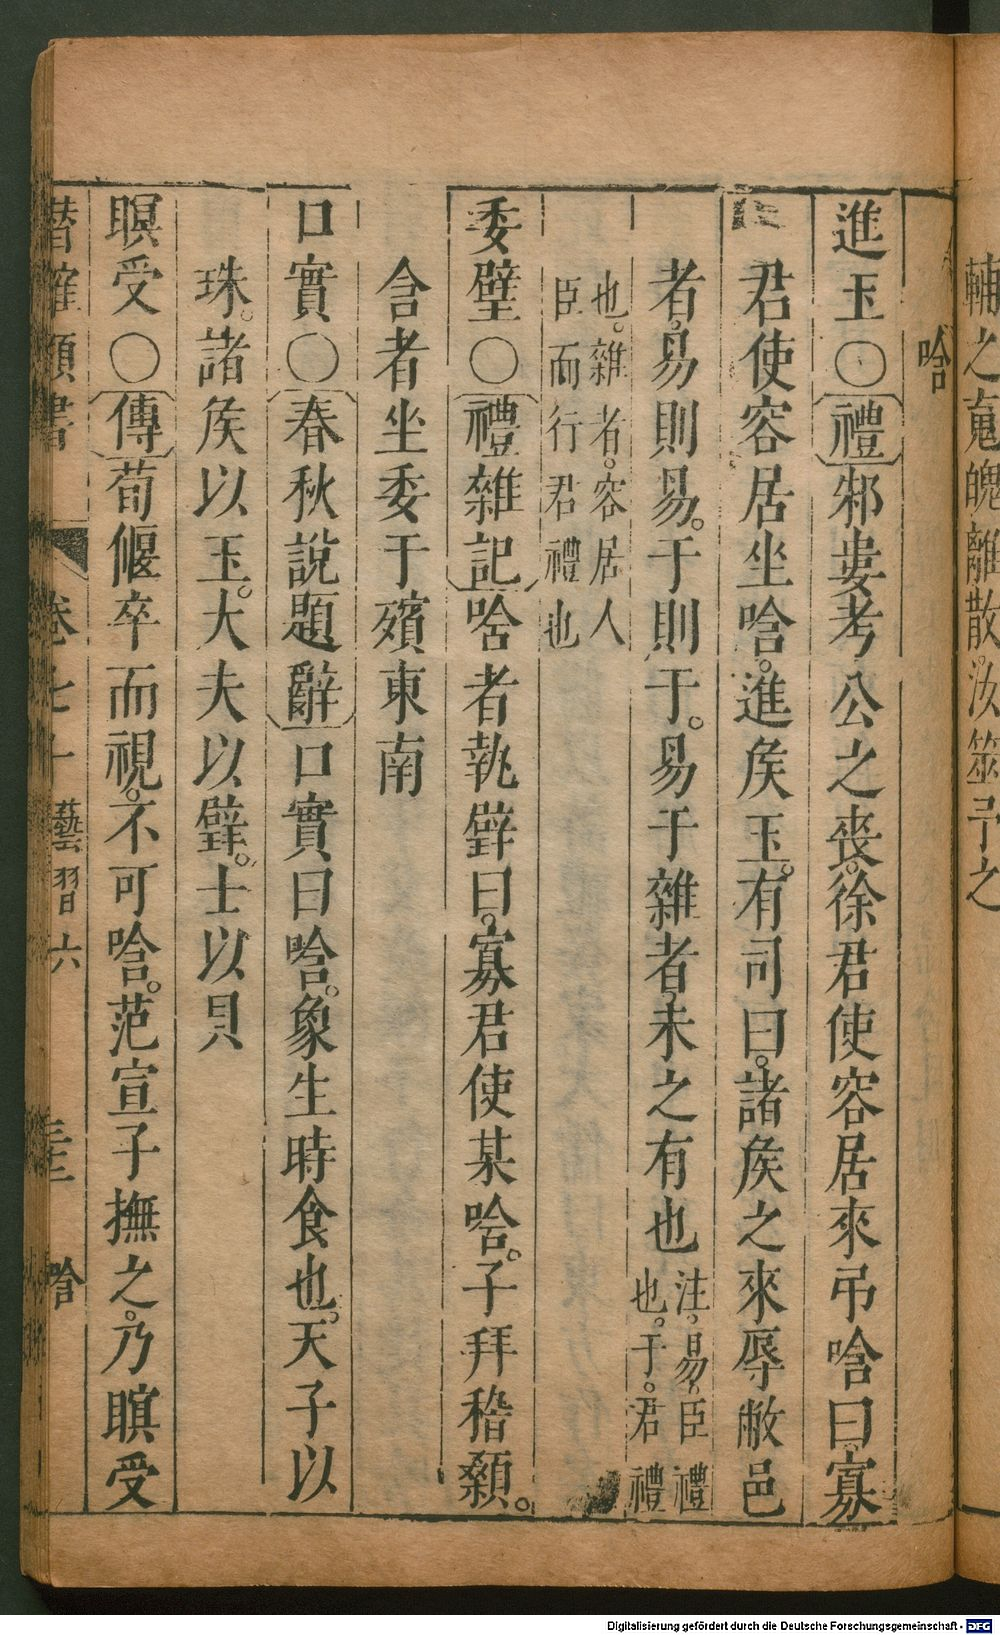 輔之蒐魄離散汝筮予之
唅
進玉〇禮邾婁考公之喪。徐君使容居來弔唅曰。寡
君使容居坐唅。進矦玉。有司曰。諸矦之來辱敝邑
者。易則易。于則于。易于雜者。未之有也
注。易。臣禮
也。于。君禮
也。雜者。容居人
臣而行君禮也
委璧〇禮雜記唅者執璧曰。寡君使某唅。子拜稽顙。
含者坐委于殯東南
口實〇春秋說題辭口實曰唅。象生時食也。天子以
珠。諸矦以玉。大夫以璧。士以貝
瞑受〇傳荀偃卒而視。不可唅。范宣子撫之。乃瞑受
潛確類書 卷七十 藝習六 唅
Digitalisierung gefördert durch die Deutsche Forschungsgemeinschaft - DFG